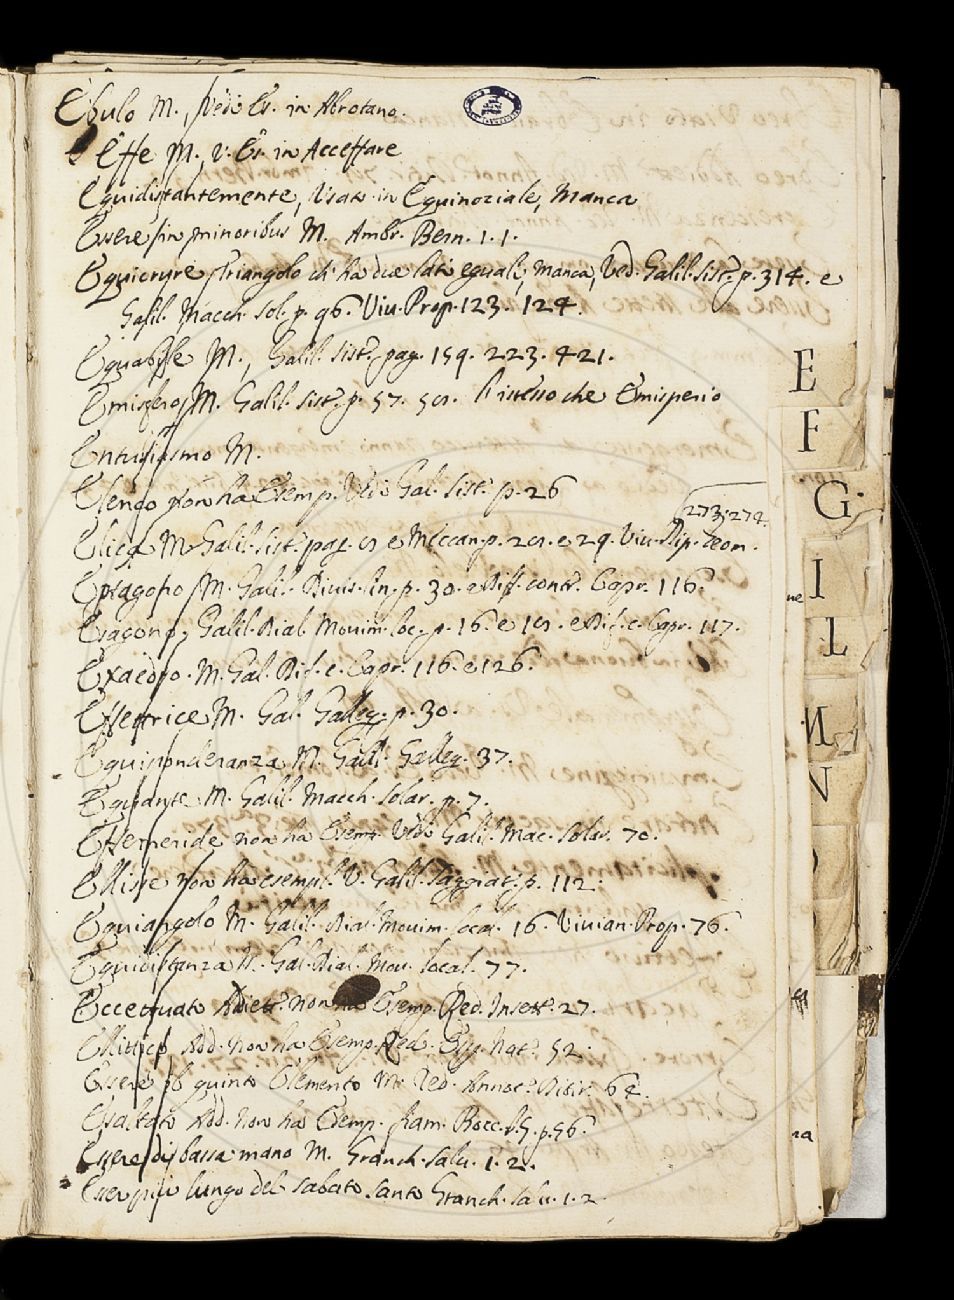 Ebulo M., vedi Es. in Abrotano.
Effe M., v. Es. in Acceffare
Equidistantemente, Usato in Equinoziale, Manca
Essere in minoribus M. Ambr. Bern. 1. 1.
Equicrure, Triangolo ch' ha due lati eguali, manca, Ved. Galil. Sist. p. 314. e
Galil. Macch. Sol. p. 96. Viv. Prop. 123. 124.
Equabile M., Galil. Sist. pag. 159. 223. 421.
Emisfero, M. Galil. Sist. p. 57. 58. l'istesso che Emisperio
Entusiasmo M.
Elenco non ha Esemp. Ved. Gal. Sist. p. 26
273. 274.
Elica M. Galil. Sist. pag. e Meccan. p. 28. e 29. Viv. Geom.
Eptagono, M. Galil. p. 30. e Dif. contr. Capr. 116.
Esagono, Galil. Dial. Movim. loc. p. 16. e 18. e Dif. c. Capr. 117.
Exaedro. M. Gal. Dif. c. Capr. 116. e 126.
Effettrice M. Gal. Galleg. p. 30.
Equiponderanza M. Galil. Galleg. 37.
Equante M. Galil. Macch. Solar. p. 7.
Effemeride non ha Esemp. Ved. Galil. Mac. Solar. 70.
Ellisse non ha esempl. V. Galil. Saggiat. p. 112.
Equiangolo M. Galil. Dial. Movim. local. 16. Vivian. Prop. 76.
Equidistanza M. Gal. Dial. Mov. local. 77.
Eccettuato Adiett. non ha Esemp. Red. Insett. 27.
Ellittico, Add. non ha Esemp. Red. Esp. Nat. 52.
Essere il quinto Elemento M. Red. Annot. Ditir. 64.
Esaltato Add. non ha Esemp. Fram. Rocc. p. 56.
Essere di bassa mano M. Granch. Salv. 1. 2.
Esser più lungo del Sabato Santo Granch. Salv. 1. 2.
E
F
G
I
L
M
N